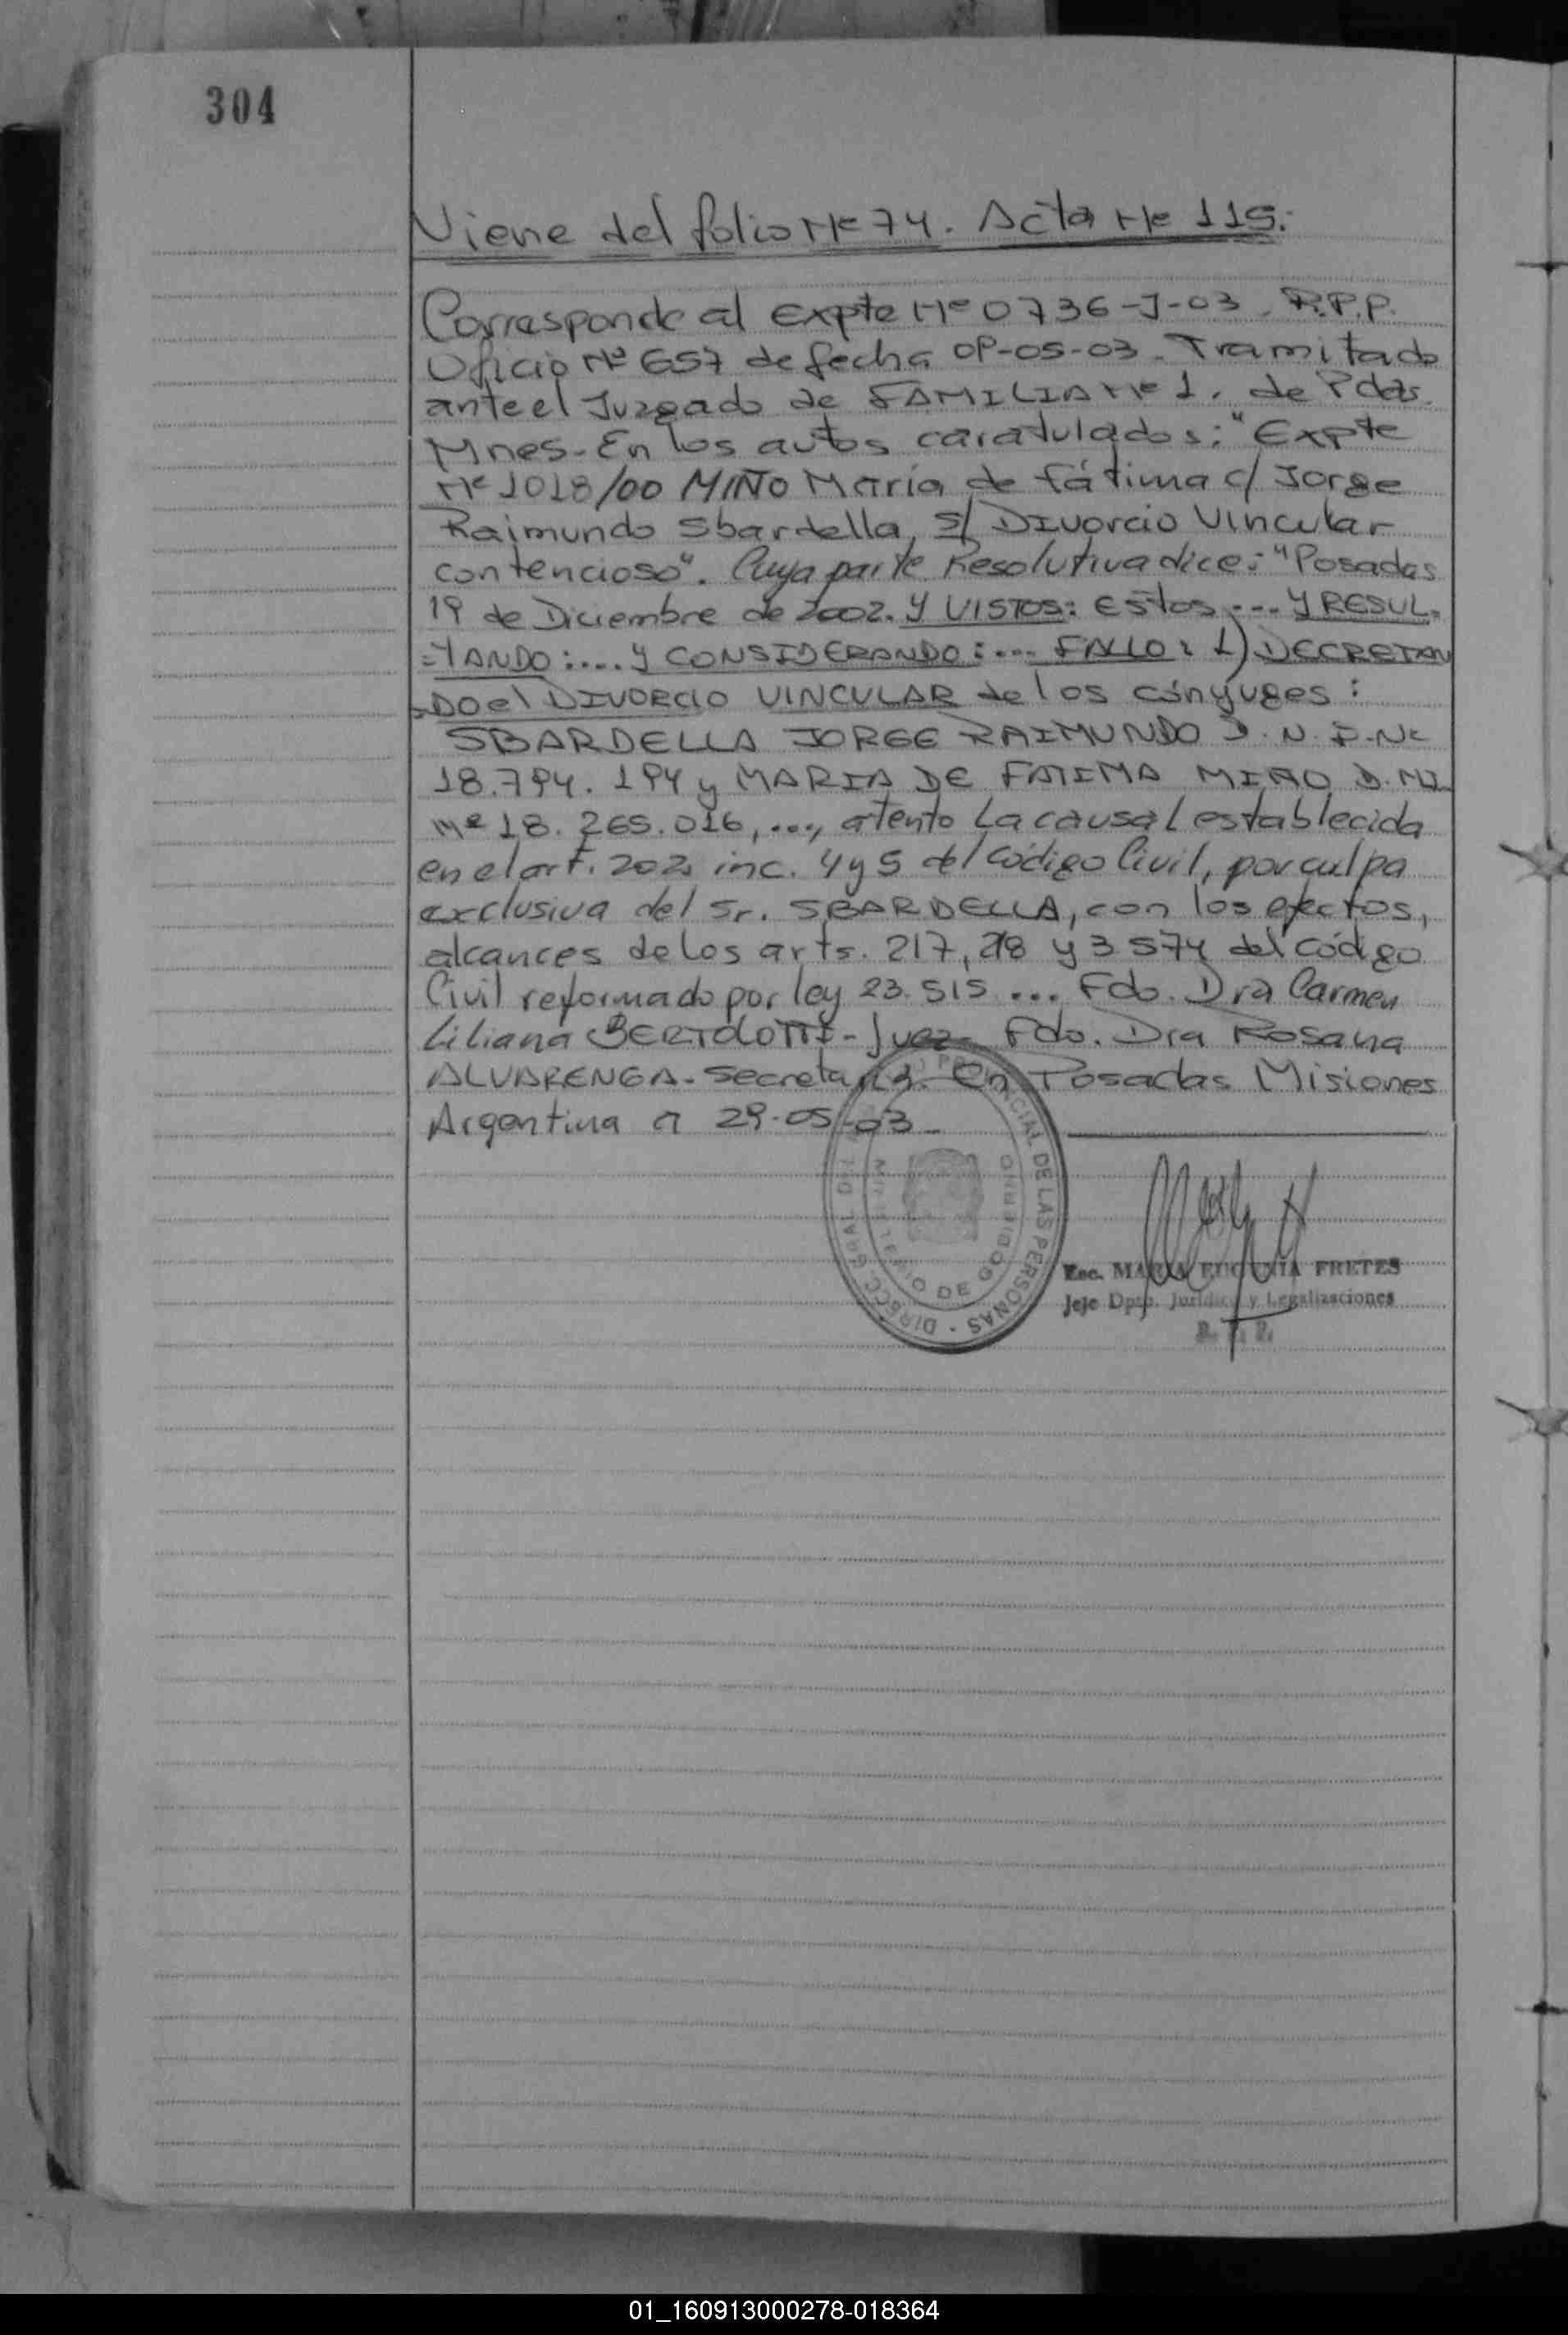 304
Viene del folio Nº 74. Acta Nº 115.
Corresponde al Expte Nº 0736-J-03. R.P.P.
Oficio Nº 657 de fecha 09-05-03. Tramitado
ante el Juzgado de FAMILIA Nº 1. de Pdas.
Mnes- En los autos caratulados: "Expte
Nº 1018/00 MIÑO María de Fátima c/ Jorge
Raimundo Sbardella, S/ Divorcio Vincular
contencioso". Cuya parte Resolutiva dice: "Posadas
19 de Diciembre de 2002. Y VISTOS: Estos .... Y RESUL-
=TANDO:.... Y CONSIDERANDO:.... FALLO: 1) DECRETAN
=DO el DIVORCIO VINCULAR de los cónyuges:
SBARDELLA JORGE RAIMUNDO D.N.I. Nº
18.794.194 y MARIA DE FATIMA MIÑO D.NI
Nº 18.265.016, ..., atento La causal establecida
en el art. 202 inc. 4 y 5 del Código Civil, por culpa
exclusiva del Sr. SBARDELLA, con los efectos,
alcances de los arts. 217, 218 y 3574 del Código
Civil reformado por ley 23.515 ... Fdo. Dra Carmen
Liliana BERTOLOTTI- Juez- Fdo. Dra Rosana
ALVARENGA- Secretaria. En Posadas Misiones
Argentina a 29-05-03-
PROVINCIAL DE LAS PERSONAS - DIRECC. GRAL DEL
MINISTERIO DE GOBIERNO
Esc. MARIA EUGENIA FRETES
Jefe Dpto. Jurídico y Legalizaciones
R. P. P.
01_160913000278-018364